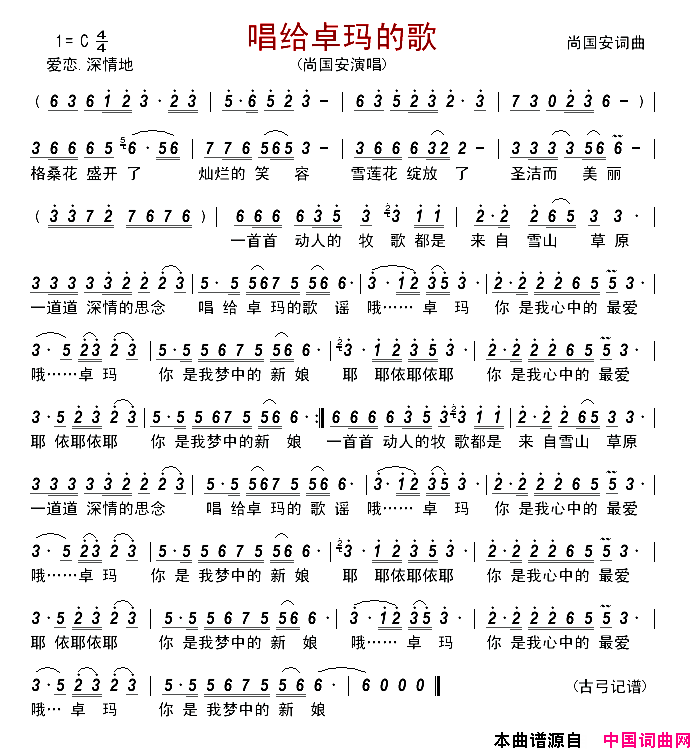 唱给卓玛的歌
1=C 4/4 尚国安词曲
爱恋.深情地 (尚国安演唱)
( 6 3 6 1 2 3· 2 3 | 5· 6 5 2 3 - | 6 3 5 2 3 6 - | 7 3 0 2 3 6 - )
3 6 6 6 5 5 6· 5 6 | 7 7 6 5 6 5 2 3 | 3 6 6 6 6 3 2 2 | 3 5 6 5 6 6 -
格桑花 盛开 了 灿烂的 笑 容 雪莲花 绽放 了 圣洁而 美 丽
( 3 3 7 2 7 6 7 6 ) | 6 6 6 6 3 5 3 2 3 1 1 | 2· 2 2 6 5 3 3 |
一首首 动人的 牧 歌都是 来 自 雪山 草 原
3 3 3 3 3 3 5 2 3 | 5· 5 5 6 7 5 5 6 6· | 3· 1 2 3 5 3 | 2· 2 2 2 2 6 5 5 3· |
一道道 深情的思念 唱 给 卓玛的歌 谣 哦……卓 玛 你 是我心中的 最爱
3· 5 2 3 2 3 | 5· 5 5 5 6 7 5 5 6 6· | 2 3· 1 2 3 5 3 | 2· 2 2 2 2 6 5 5 3· |
哦……卓 玛 你 是我梦中的 新 娘 耶 耶依耶依耶 你 是我心中的 最爱
3· 5 5 2 3 2 3 | 5· 5 5 5 6 7 5 5 6 6· :| 6 6 6 6 3 5 3 2 3 1 1 | 2· 2 2 6 5 3 3 |
耶 依耶依耶 你 是我梦中的新 娘 一首首 动人的牧 歌都是 来 自雪山 草原
3 3 3 3 3 3 5 2 3 | 5· 5 5 6 7 5 5 6 6· | 3· 1 2 3 5 3 | 2· 2 2 2 2 6 5 5 3· |
一道道 深情的思念 唱 给 卓玛的 歌 谣 哦……卓 玛 你 是我心中的 最爱
3· 5 2 3 2 3 | 5· 5 5 5 6 7 5 5 6 6· | 2 3· 1 2 3 5 3 | 2· 2 2 2 2 6 5 5 3· |
哦……卓 玛 你 是 我梦中的 新 娘 耶 耶依耶依耶 你 是我心中的 最爱
3· 5 5 2 3 2 3 | 5· 5 5 5 6 7 5 5 6 6· | 3· 1 2 3 5 3 | 2· 2 2 2 2 6 5 5 3· |
耶 依耶依耶 你 是 我梦中的 新 娘 哦……卓 玛 你 是我心中的 最爱
3· 5 2 3 2 3 | 5· 5 5 5 6 7 5 5 6 6· | 6 0 0 0 || (古弓记谱)
哦…卓 玛 你 是 我梦中的 新 娘
本曲谱源自 中国词曲网